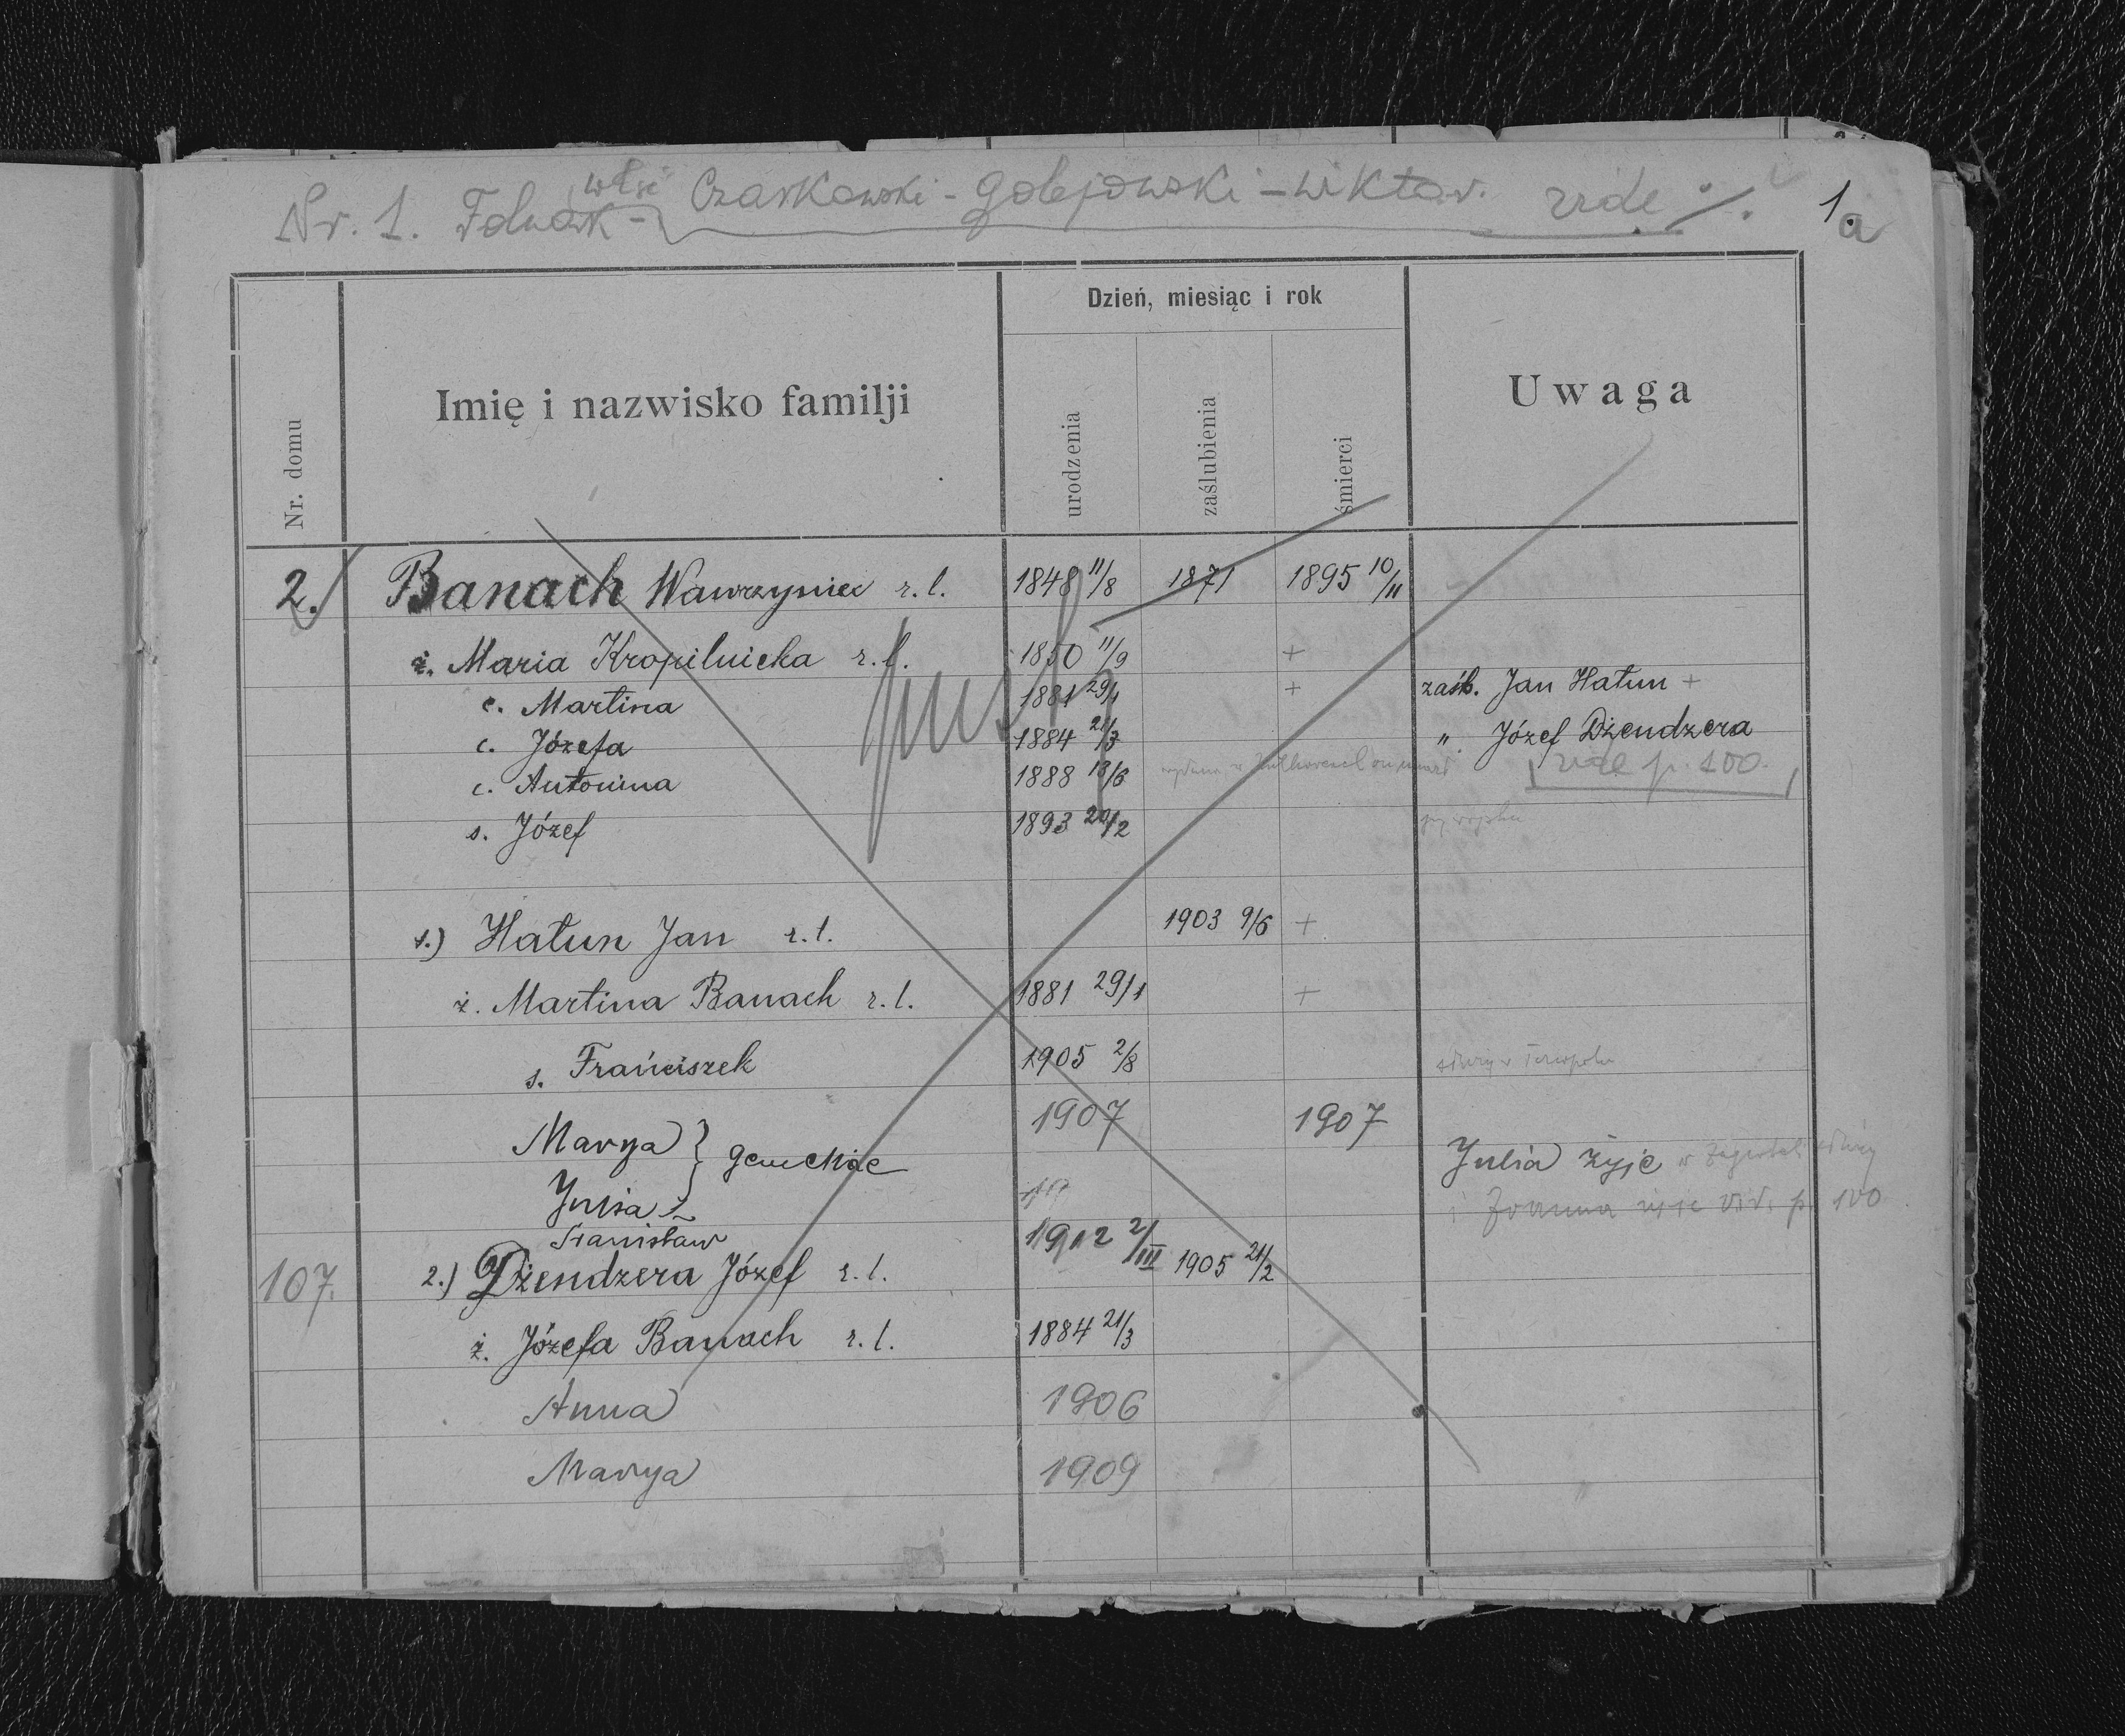 Nr. 1. Folwark - właść Czarkowski - Golejowski - Wiktor. vide ·/.
1a
Nr. domu
Imię i nazwisko familji
Dzień, miesiąc i rok
urodzenia
zaślubienia
śmierci
Uwaga
2. Banach Wawrzyniec r. l. 1848 11/8 1871 1895 10/11
ż. Maria Kropilnicka r. l. 1850 11/9 +
c. Martina 1881 29/1 + zaśb. Jan Hatun +
c. Józefa 1884 21/3 " Józef Dżendzera
c. Antonina 1888 13/6 vide p. 100.
s. Józef 1893 20/2
1.) Hatun Jan r. l. 1903 9/6 +
ż. Martina Banach r. l. 1881 29/1 +
s. Franciszek 1905 2/8
Marya } 1907 1907
Julia Julia żyje
i Joanna żyje vid. p. 100
Stanisław 1912 2/III
107. 2.) Dżendzera Józef r. l. 1905 21/2
ż. Józefa Banach r. l. 1884 21/3
Anna 1906
Marya 1909